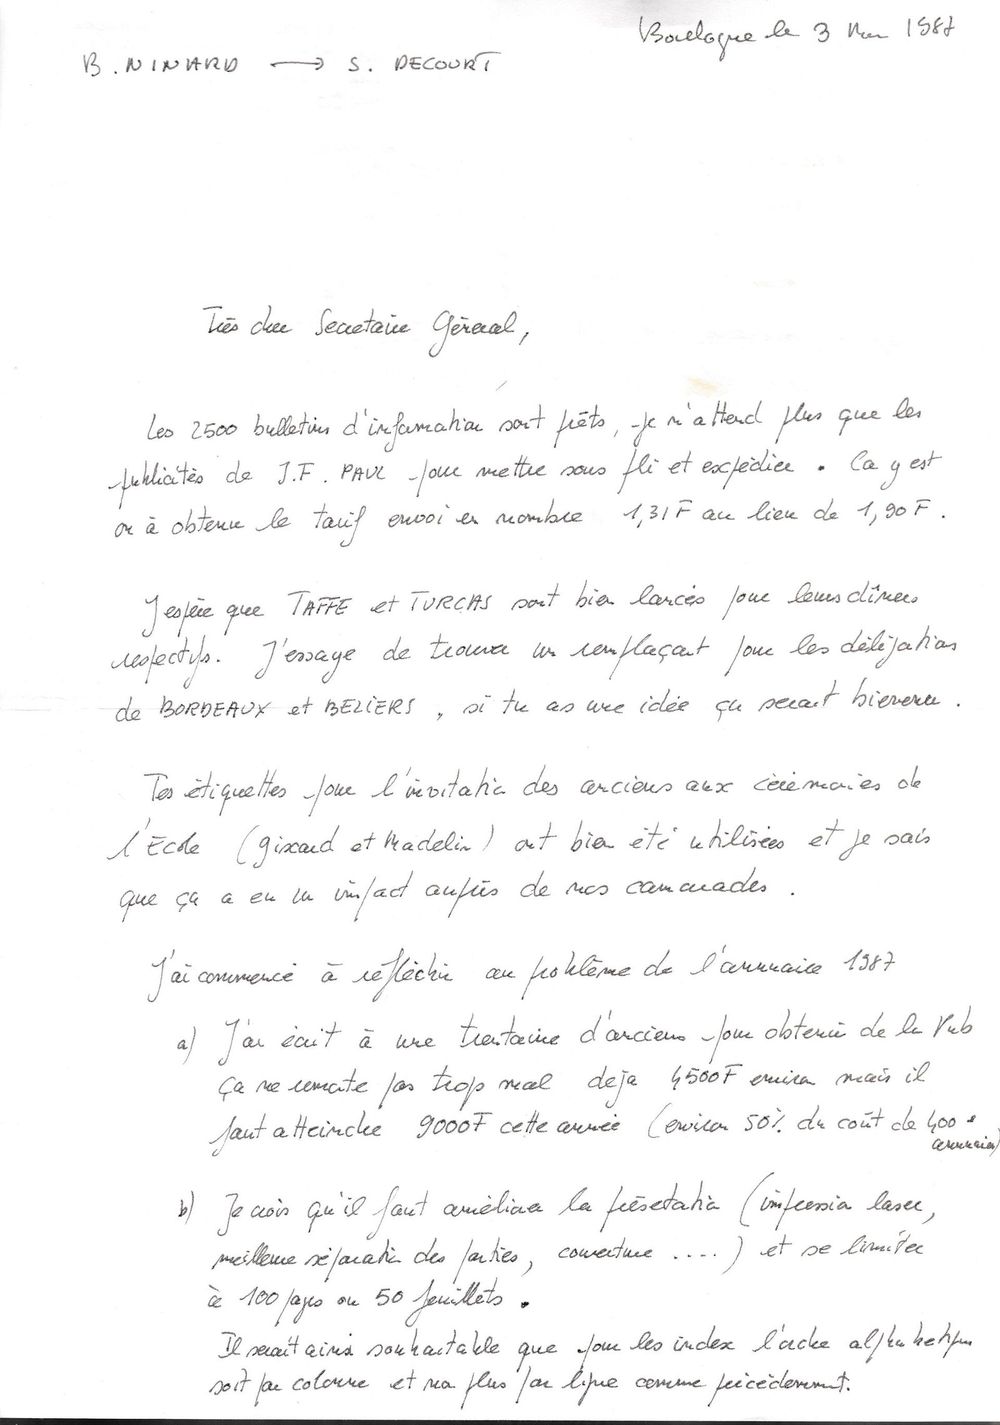 Boulogne le 3 Mar 1987
B. NINARD → S. DECOURT
Très cher Secretaire Géneral,
Les 2500 bulletins d'information sont prêts, je n'attend plus que les
publicités de J.F. PAUL pour mettre sous pli et expédier. Ca y est
on à obtenu le tarif envoi en nombre 1,31F au lieu de 1,90F.
J'espère que TAFFE et TURCAS sont bien lancés pour leurs dîners
respectifs. J'essaye de trouver un remplaçant pour les délégations
de BORDEAUX et BEZIERS, si tu as une idée ça serait bienvenu.
Tes étiquettes pour l'invitation des anciens aux cérémonies de
l'Ecole (giscard et Madelin) ont bien été utilisées et je sais
que ça a eu un impact auprès de nos camarades.
J'ai commencé à réfléchir au problème de l'annuaire 1987
a) J'ai écrit à une trentaine d'anciens pour obtenir de la Pub
ça ne remonte pas trop mal deja 4500F environ mais il
faut atteindre 9000F cette année (environ 50% du coût de 400
annuaires)
b) Je crois qu'il faut améliorer la présentation (impression laser,
meilleure séparation des parties, couverture ....) et se limiter
à 100 pages ou 50 feuillets.
Il serait ainsi souhaitable que pour les index l'ordre alphabetique
soit par colonne et non plus par ligne comme précédemment.